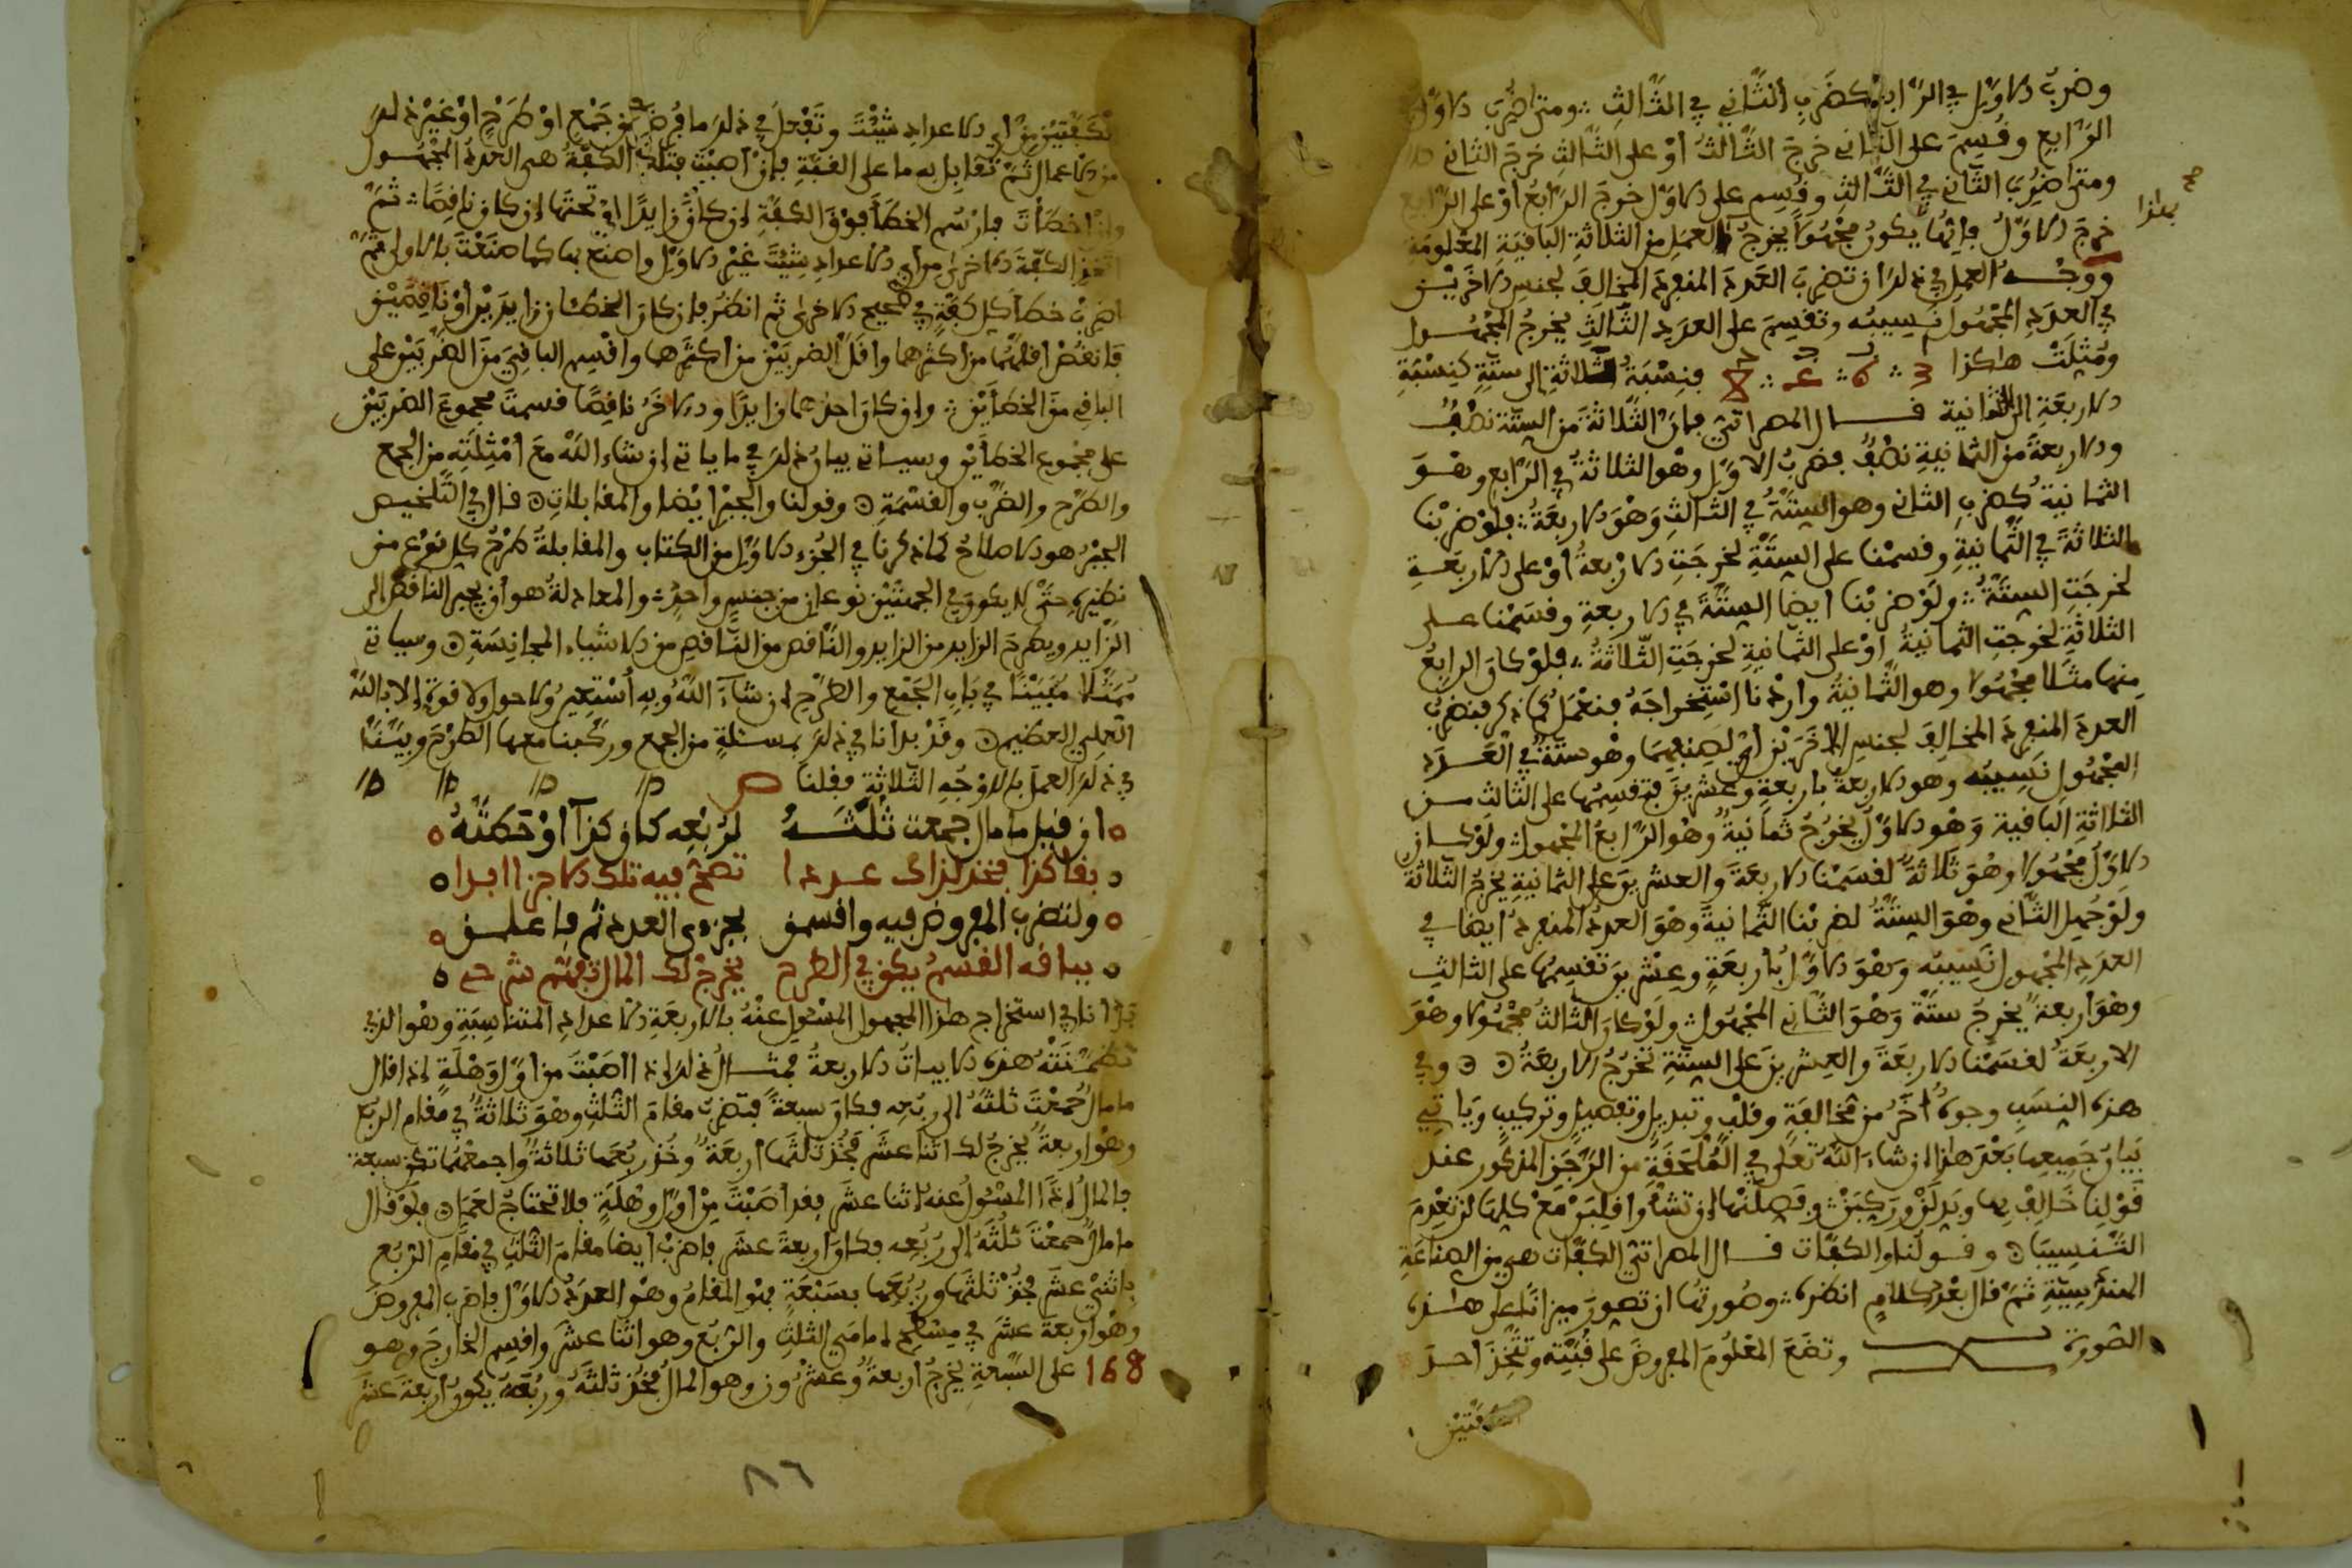 وضرب الاول في الرابع كضرب الثاني في الثالث ومتى اضرب الاول في
الرابع وقسم على الثاني خرج الثالث أو على الثالث خرج الثاني
ومتى اضرب الثاني في الثالث وقسم على الاول خرج الرابع أو على الرابع
خرج الاول فايها يكون مجهولا يخرج العمل من الثلاثة الباقية المعلومة
صح
بهذا
ووجه العمل في ذلك ان تضرب العدد المنفرد المخالف لجنس الاخريين
في العدد المجهول نسيبه وتقسم على العدد الثالث يخرج المجهول
ومثلت هاكذا 3 ∴ 6 ∴ 4 ∴ 8 فنسبة الثلاثة الى ستة كنسبة
الاربعة الى الثمانية قال المصراتي فان الثلاثة من الستة نصف
والاربعة من الثمانية نصف فضرب الاول وهو الثلاثة في الرابع وهو
الثمانية كضرب الثاني وهو الستة في الثالث وهو الاربعة فلو ضربنا
الثلاثة في الثمانية وقسمنا على الستة لخرجت الاربعة أو على الاربعة
لخرجت الستة ولو ضربنا ايضا الستة في الاربعة وقسمنا على
الثلاثة لخرجت الثمانية او على الثمانية لخرجت الثلاثة فلو كان الرابع
منها مثلا مجهولا وهو الثمانية واردنا استخراجه فنعمل كما ذكر فنضرب
العدد المنفرد المخالف لجنس الاخريين أي لصنفهما وهو ستة في العدد
المجهول نسيبه وهو الاربعة باربعة وعشرين فتقسمها على الثالث من
الثلاثة الباقية وهو الاول يخرج ثمانية وهو الرابع المجهول ولو كان
الاول مجهولا وهو ثلاثة لقسمنا الاربعة والعشرين على الثمانية يخرج الثلاثة
ولو جهل الثاني وهو الستة لضربنا الثمانية وهو العدد المنفرد ايضا في
العدد المجهول نسيبه وهو الاول باربعة وعشرين تقسمها على الثالث
وهو اربعة يخرج ستة وهو الثاني المجهول ولو كان الثالث مجهولا وهو
الاربعة لقسمنا الاربعة والعشرين على الستة تخرج الاربعة وفي
هذه النسب وجوه أخر من مخالفة وقلب وتبديل وتفصيل وتركيب وياتي
بيان جميعها بعد هذا ان شاء الله تعلى في الملحقة من الرجز المذكور عند
قولنا خالف بها وبدلن وركبن وفصلنها ان تشا واقلبن مع كلها لن تعدم
التنسيبا وقولنا والكفات قال المصراتي الكفات هي من الصناعة
الهندسية ثم قال بعد كلام انظره وصورتها ان تصور ميزانا على هذه
الصورة وتضع المعلوم المفروض على قبته وتتخذ احد
الكفتين
الكفتين من أي الاعداد شئت وتفعل في ذلك ما فرض من جمع او طرح او غير ذلك
من الاعمال ثم تقابل به ما على القبة فان اصبت فتلك الكفة هي العدد المجهول
وان اخطأت فارسم الخطأ فوق الكفة ان كان زايدا او تحتها ان كان ناقصا ثم
اتخذ الكفة الاخرى من أي الاعداد شئت غير الاول واصنع بها كما صنعت بالاولى ثم
اضرب خطأ كل كفة في صحيح الاخرى ثم انظر فان كان الخطئان زايدين او ناقصين
فانقص اقلهما من اكثرهما واقل الضربين من اكثرهما واقسم الباقي من الضربين على
الباقي من الخطأين وان كان احدهما زايدا والاخر ناقصا قسمت مجموع الضربين
على مجموع الخطأين وسياتي بيان ذلك في ما ياتي ان شاء الله مع أمثلته من الجمع
والطرح والضرب والقسمة وقولنا والجبر ايضا والمقابلات قال في التلخيص
الجبر هو الاصلاح كما ذكرنا في الجزء الاول من الكتاب والمقابلة طرح كل نوع من
نظيره حتى لا يكون في الجهتين نوعان من جنس واحد والمعادلة هو أن يجبر الناقص الى
الزايد ويطرح الزايد من الزايد والناقص من الناقص من الاشياء المجانسة وسياتي
ممثلا مبينا في باب الجمع والطرح ان شاء الله وبه أستعين ولا حول ولا قوة إلا بالله
العلي العظيم وقد بدانا في ذلك بمسئلة من الجمع وركبنا معها الطرح وبينا
في ذلك العمل بالاوجه الثلاثة فقلنا ص
ان قيل ما مال جمعت ثلثه لربعه كان كذا أو حطته
بقا كذا فخذ لذاك عددا تصح فيه تلك الاجزا ابدا
ولتضرب المفروض فيه واقسمن بجزءي العدد ثم فاعلمن
بباقه القسم يكن في الطرح يخرج لك المال تفهم شرحي
بدانا في استخراج هذا المجهول المسئول عنه بالاربعة الاعداد المتناسبة وهو الذي
تضمنته هذه الابيات الاربعة فمثال ذلك اذا اصبت من اول وهلة اذا قال
ما مال جمعت ثلثه الى ربعه فكان سبعة فتضرب مقام الثلث وهو ثلاثة في مقام الربع
وهو اربعة يخرج لك اثنا عشر فخذ ثلثها اربعة وخذ ربعها ثلاثة واجمعهما تكن سبعة
فالمال إذا المسئول عنه اثنا عشر فقد اصبت من اول وهلة فلا تحتاج لعمل فلو قال
ما مال جمعت ثلثه إلى ربعه فكان اربعة عشر فاضرب ايضا مقام الثلث في مقام الربع
باثني عشر فخذ ثلثها وربعها بسبعة فهو المقام وهو العدد الاول فاضرب المفروض
وهو اربعة عشر في مسطح امامي الثلث والربع وهو اثنا عشر واقسم الخارج وهو
168 على السبعة يخرج اربعة وعشرون وهو المال فخذ ثلثه وربعه يكون اربعة عشر
٨٦